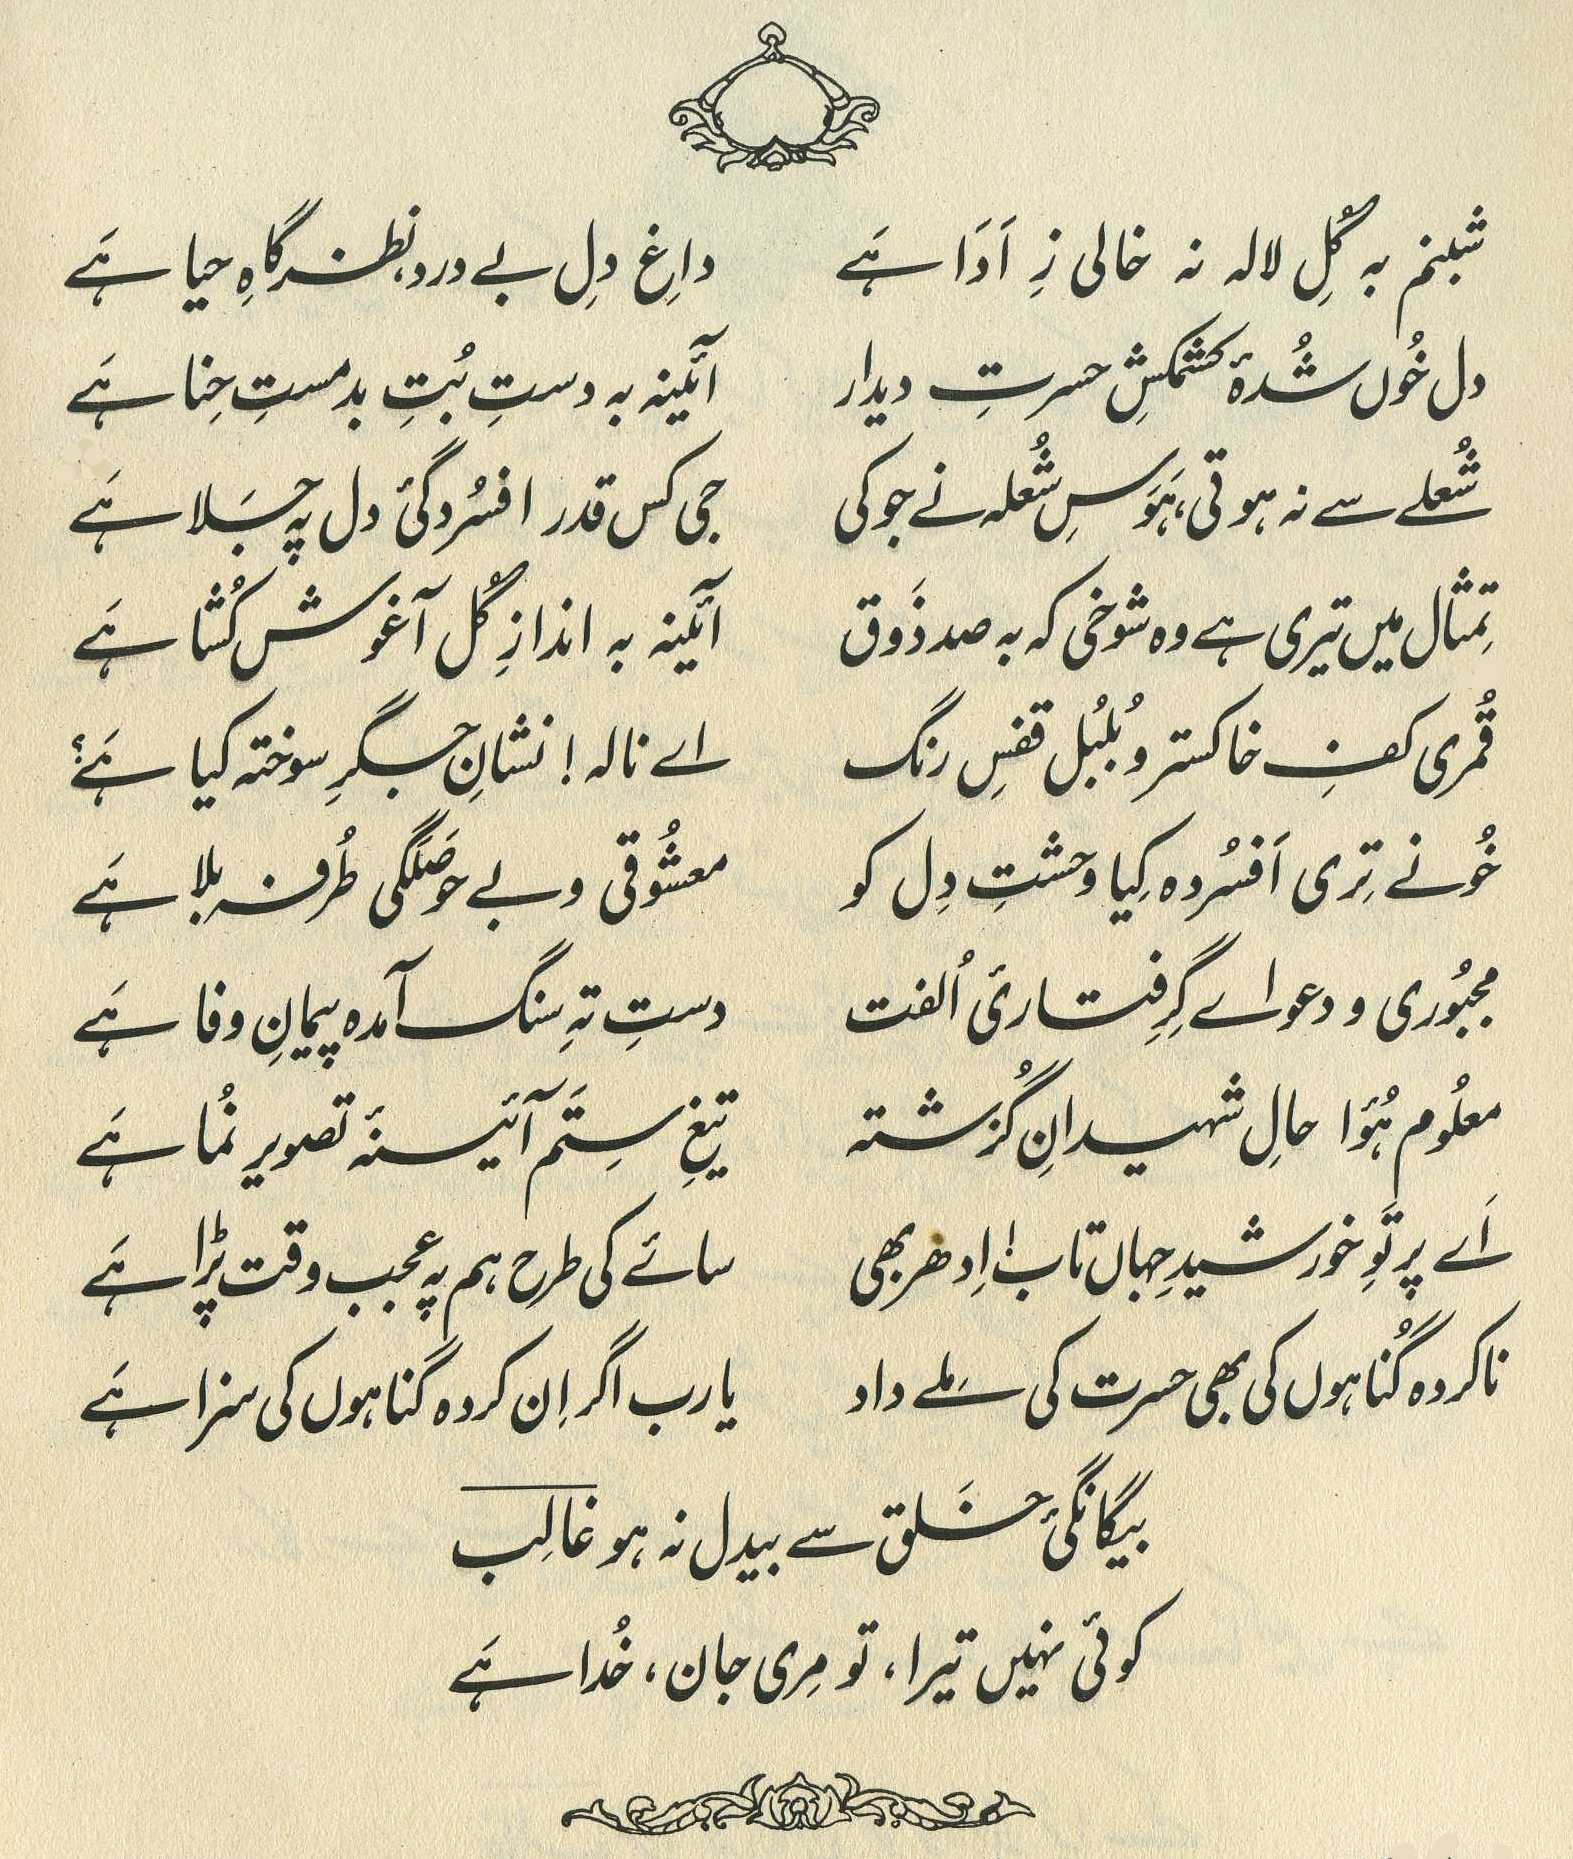 شبنم بہ گُلِ لالہ نہ خالی زِ اَدَا ہَے داغِ دِلِ بے درد، نظر گاہِ حیا ہَے
دل خُوں شُدۂ کشمکشِ حسرتِ دیدار آئینہ بہ دستِ بُتِ بدمستِ حِنا ہَے
شُعلے سے نہ ہوتی، ہَوَسِ شُعلہ نے جو کی جی کس قدر افسُردگیٔ دل پہ جَلا ہَے
تِمثال میں تیری ہے وہ شوخی کہ بہ صد ذَوق آئینہ بہ اندازِ گُل آغوش کُشا ہَے
قُمری کفِ خاکستر و بُلبُل قفسِ رنگ اے نالہ! نشانِ جگرِ سوختہ کیا ہَے؟
خُو نے تِری اَفسُردہ کِیا وحشتِ دِل کو معشُوقی و بے حَوصَلَگی طُرفہ بلا ہَے
مجبُوری و دعواے گِرِفتاریٔ اُلفت دستِ تہِ سنگ آمدہ پیمانِ وفا ہَے
معلُوم ہُؤا حالِ شہیدانِ گُزشتہ تیغِ سِتَم آئینۂ تصویر نُما ہَے
اَے پرتَوِ خورشیدِ جِہاں تاب! اِدھر بھی سائے کی طرح ہم پہ عجب وقت پڑا ہَے
ناکردہ گُناہوں کی بھی حسرت کی مِلے داد یارب اگر اِن کردہ گناہوں کی سزا ہَے
بیگانگیٔ خَلق سے بیدل نہ ہو غالِب
کوئی نہیں تیرا، تو مِری جان، خُدا ہَے